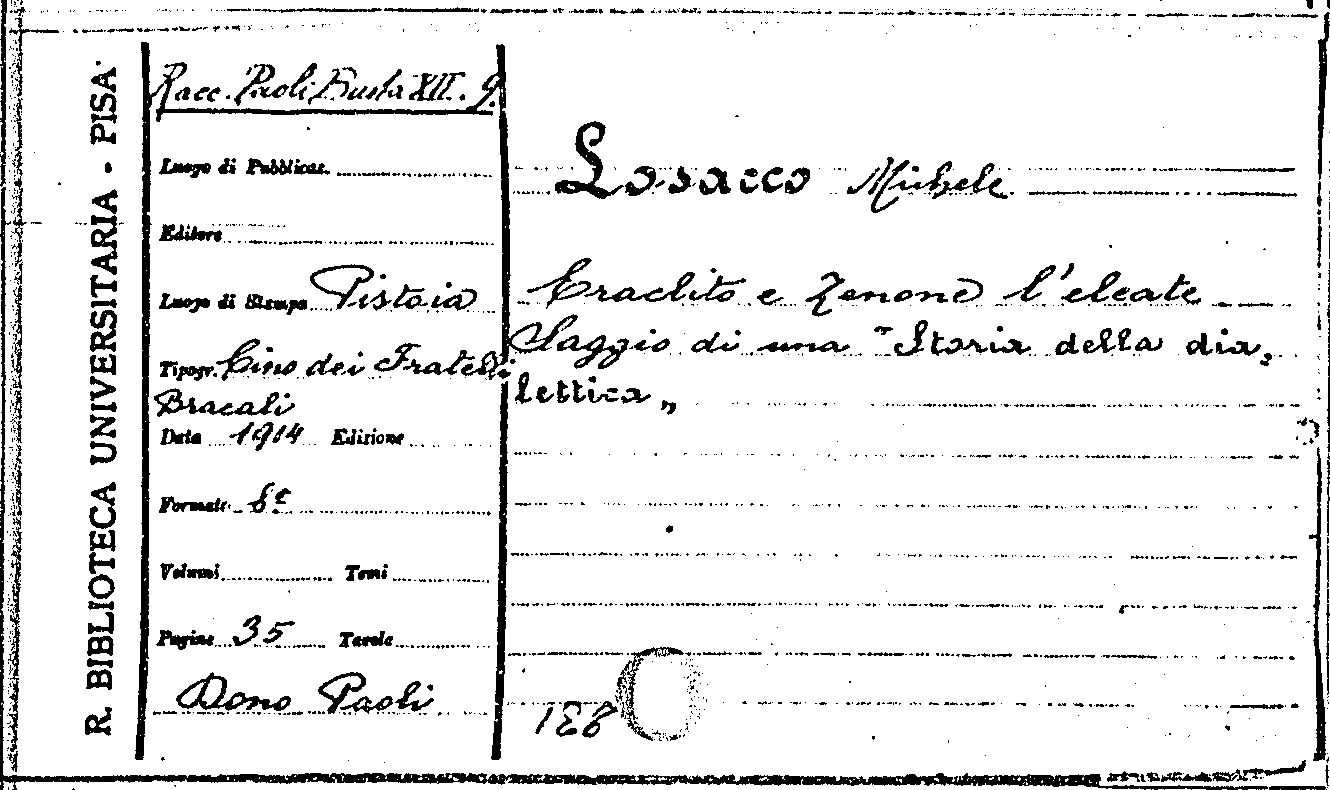 R. BIBLIOTECA UNIVERSITARIA - PISA
Racc. Paoli Busta XII. 9.
Luogo di Pubblicaz.
Editore
Luogo di Stampa Pistoia
Tipogr. Cino dei Fratelli
Bracali
Data 1914 Edizione
Formato 8º
Volumi Tomi
Pagine 35 Tavole
Dono Paoli
Losacco Michele
Eraclito e Zenone l'eleate
Saggio di una "Storia della dia,
lettica„